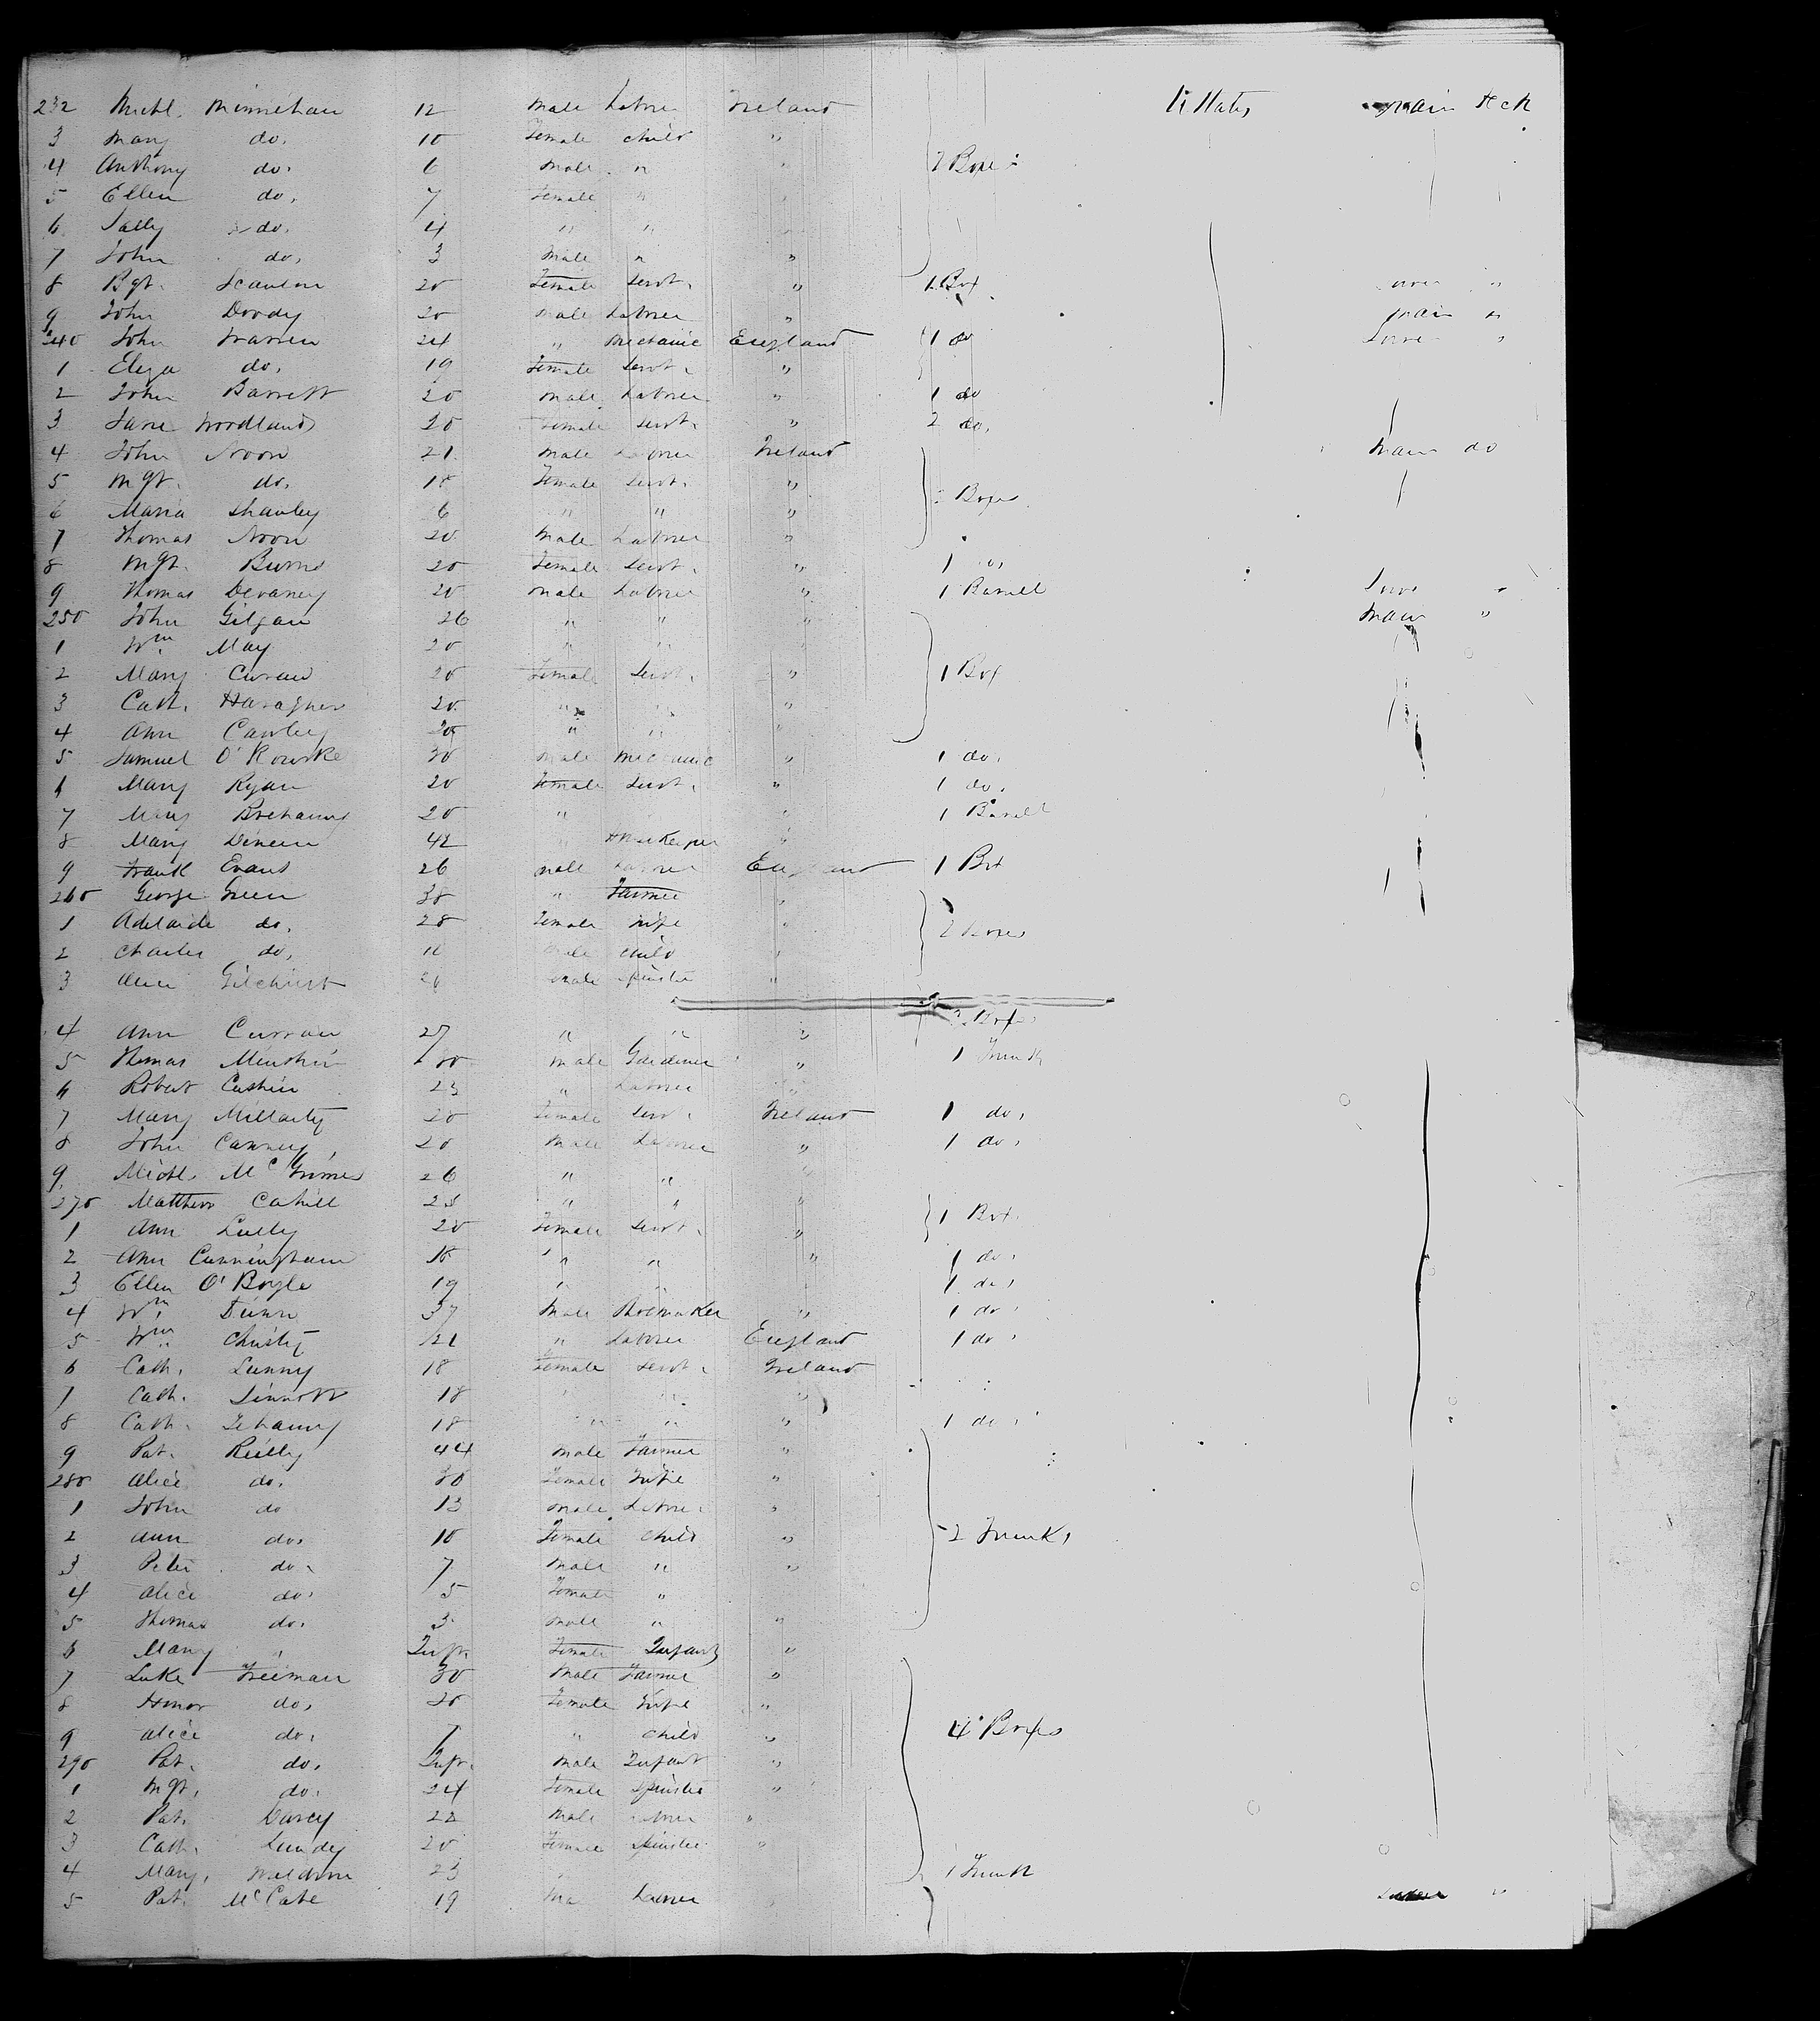 232 Michl. Minnehan 12 Male Laborer Ireland U States Main Deck
3 Mary do. 10 Female child "
4 Anthony do. 6 Male " " 2 Boxes
5 Ellen do. 7 Female " "
6 Sally do. 4 " " "
7 John do. 3 Male " "
8 Bgt. Scanlon 20 Female Servt. " 1 Box Lower "
9 John Doody 20 Male Laborer " Main "
240 John Warren 24 " Mechanic England 1 do Lower "
1 Eliza do. 19 Female Servt. "
2 John Barrett 20 Male Laborer " 1 do
3 Jane Woodland 20 Female Servt. " 2 do.
4 John Noon 21 Male Laborer Ireland Main do
5 Mgt. do. 18 Female Servt. " Boxes
6 Maria Shanley 6 " " "
7 Thomas Noon 20 Male Laborer "
8 Mgt. Burns 20 Female Servt. " 1
9 Thomas Devaney 20 Male Laborer " 1 Barrell Lower "
250 John Gilgan 26 " " " Main "
1 Wm. May 20 " " "
2 Mary Curran 20 Female Servt. " 1 Box
3 Cath. Haragher 20 " " "
4 Ann Cawley 20 " " "
5 Samuel O'Rourke 30 Male Mechanic " 1 do.
6 Mary Ryan 20 Female Servt. " 1 do.
7 Mary Brehanny 20 " " 1 Barrell
8 Mary Dineen 42 " Housekeeper "
9 Frank Evans 26 Male Laborer England 1 Box
260 George Green 38 " Farmer "
1 Adelaide do. 28 Female Wife " 2 Boxes
2 Charles do. Male child "
3 Gilchrist Male Spinster "
4 Ann Curran 27 " " " 2 Boxes
5 Thomas Male Gardener " 1 Trunk
6 Robert Cashin 23 " Laborer "
7 Mary 20 Female Servt. Ireland 1 do.
8 John Canney 20 Male Laborer " 1 do.
9 Michl. McGrimes 26 " " "
270 Matthew Cahill 25 " " "
1 Ann Lally 20 Female Servt. " 1 Box.
2 Ann Cunningham 18 " " " 1 do.
3 Ellen O'Boyle 19 " 1 do.
4 Wm. Dunn 37 Male Shoemaker " 1 do.
5 Wm. Christy 21 " Laborer England 1 do.
6 Cath. Lunny 18 Female Servt. Ireland
7 Cath. Sinnott 18 " " "
8 Cath. 18 " " " 1 do.
9 Pat. Reilly 44 Male Farmer "
280 Alice do. 30 Female Wife "
1 John do 13 Male Laborer "
2 Ann do. 10 Female Child " 2 Trunks
3 Peter do. 7 Male " "
4 Alice do. 5 Female "
5 Thomas do. 3 Male " "
6 Mary " Inft. Female Infant "
7 Luke Freeman 30 Male Farmer "
8 Honor do. 20 Female Wife "
9 Alice do. 7 " Child " 4 Boxes
290 Pat. do. Inft. Male Infant "
1 Mgt. do. 24 Female Spinster "
2 Pat. Darcy 22 Male Laborer "
3 Cath. Lundy 20 Female Spinster "
4 Mary. Meldrum 23 1 Trunk
5 Pat. McCabe 19 Ma Laborer "